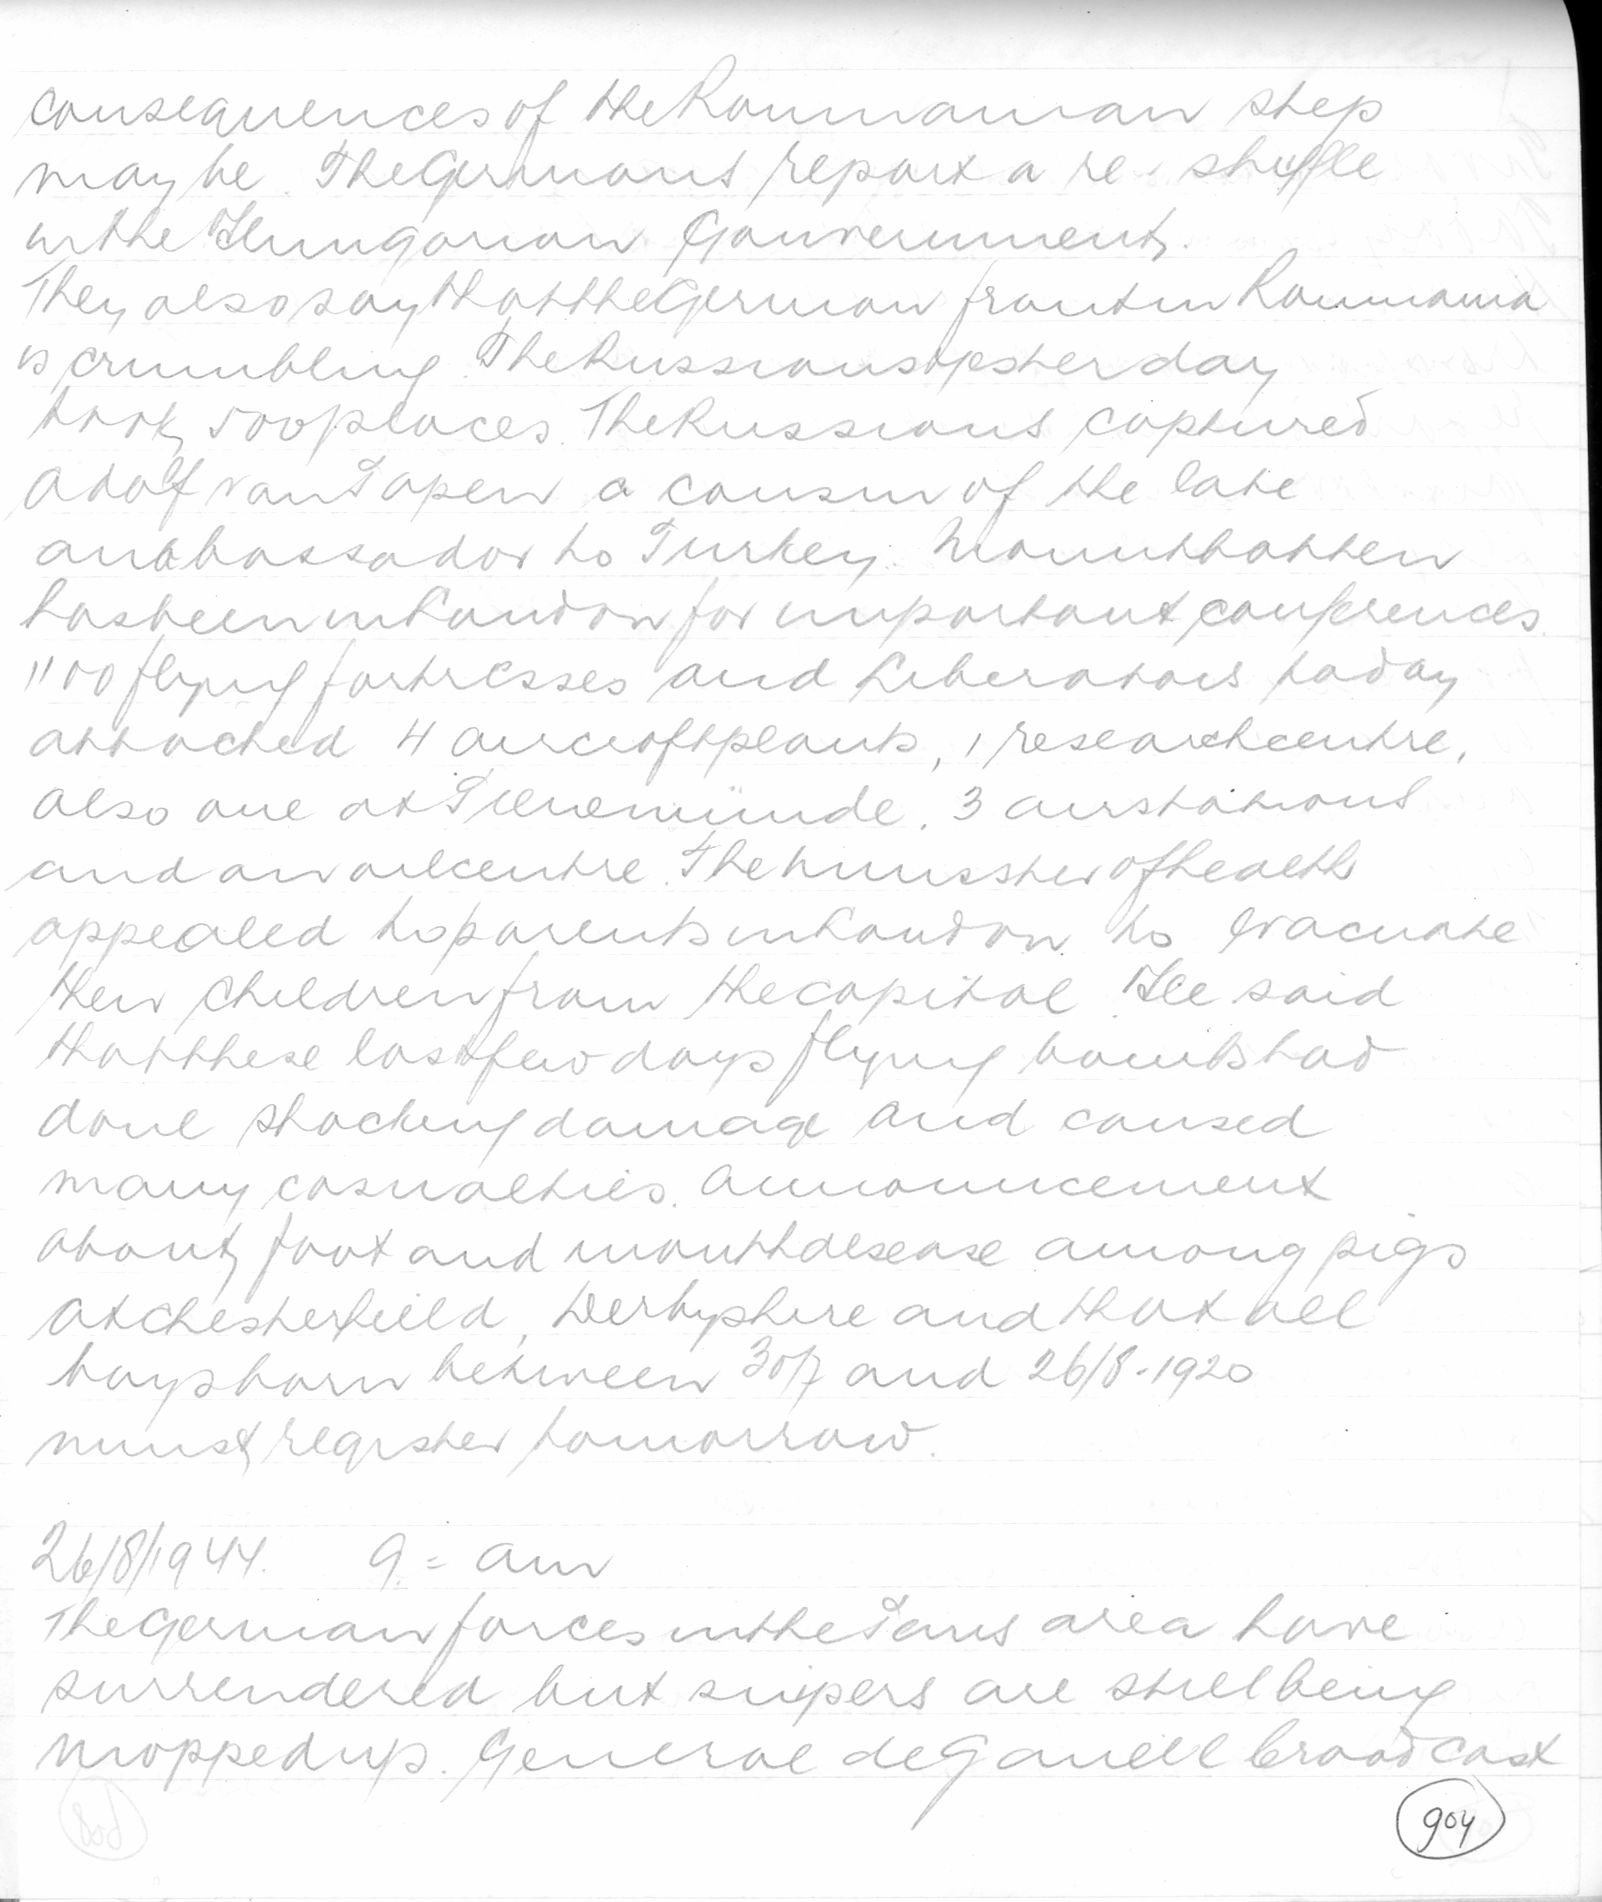 consequences of the Roumanian step
may be. The Germans report a re-shuffle
in the Hungarian Gouvernment.
They also say that the German front in Roumania
is crumbling. The Russians yesterday
took 500 places. The Russians captured
Adolf van Papen a cousin of the late
ambassador to Turkey. Mountbatten
has been in London for important conferences.
1100 flying fortresses and Liberators today
attacked 4 aircraftplants, 1 researchcentre,
also one at Peenemünde, 3 airstations
and an oilcentre. The Minister of health
appealed to parents in London to evacuate
their children from the capital. He said
that these last few days flying bombs had
done shocking damage and caused
many casualties. Announcement
about foot and mouthdesease among pigs
at Chesterfield, Derbyshire and that all
boys born between 30/7 and 26/8-1920
must register tomorrow.
26/8/1944. 9.= am
The German forces in the Paris area have
surrendered but snipers are still being
mopped up. General de Gaulle broadcast
904